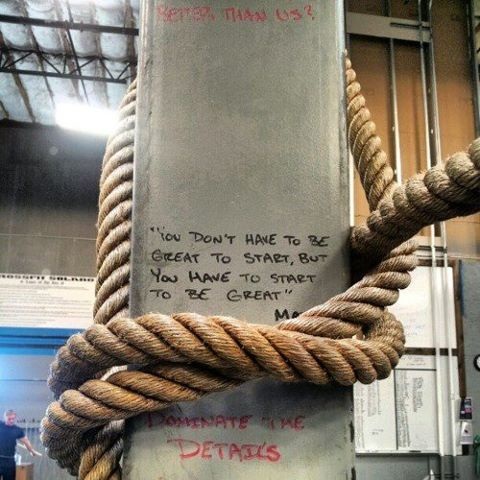 BETTER THAN US?
"YOU DON'T HAVE TO BE
GREAT TO START, BUT
YOU HAVE TO START
TO BE GREAT"
DOMINATE THE
DETAILS